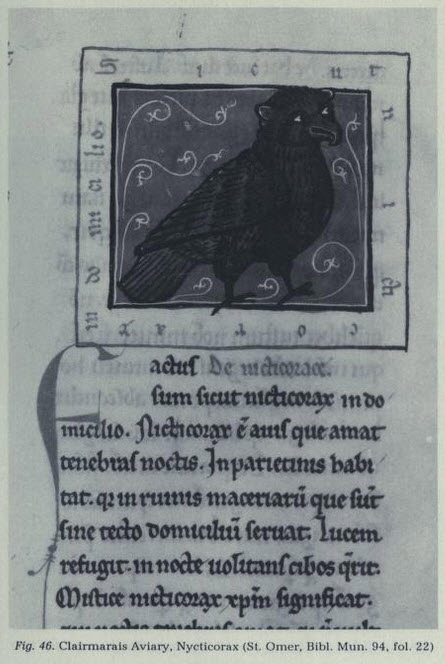 S i c u t
n i cti
c o r a x
in do mi ci lio
Factus De nicticorace.
sum sicut nicticorax in do
micilio. Nicticorax ē auis que amat
tenebras noctis. In parietinis habi
tat. qr in ruinis maceriarū que sūt
sine tecto domiciliū seruat. Lucem
refugit. in nocte uolitans cibos q̄rit.
Mistice nicticorax xp̄m significat.
Fig. 46. Clairmarais Aviary, Nycticorax (St. Omer, Bibl. Mun. 94, fol. 22)